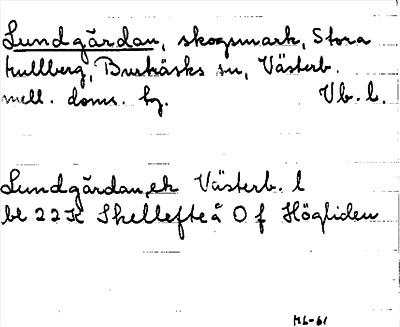 Lundgårdan, skogsmark, Stora
Kullberg, Burträsks sn, Västerb.
mell. doms. hg. Vb. l.
Lundgårdan, ek Västerb. l
bl 22K Skellefteå O f Högliden
ML-61